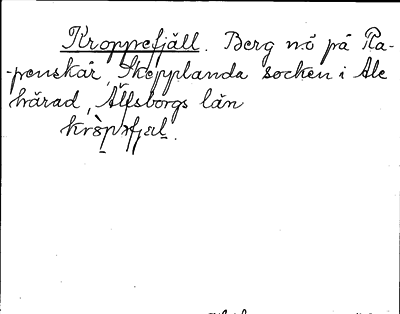 Kroppefjäll. Berg nö på Ra-
-penskär, Skepplanda socken i Ale
härad, Älfsborgs län